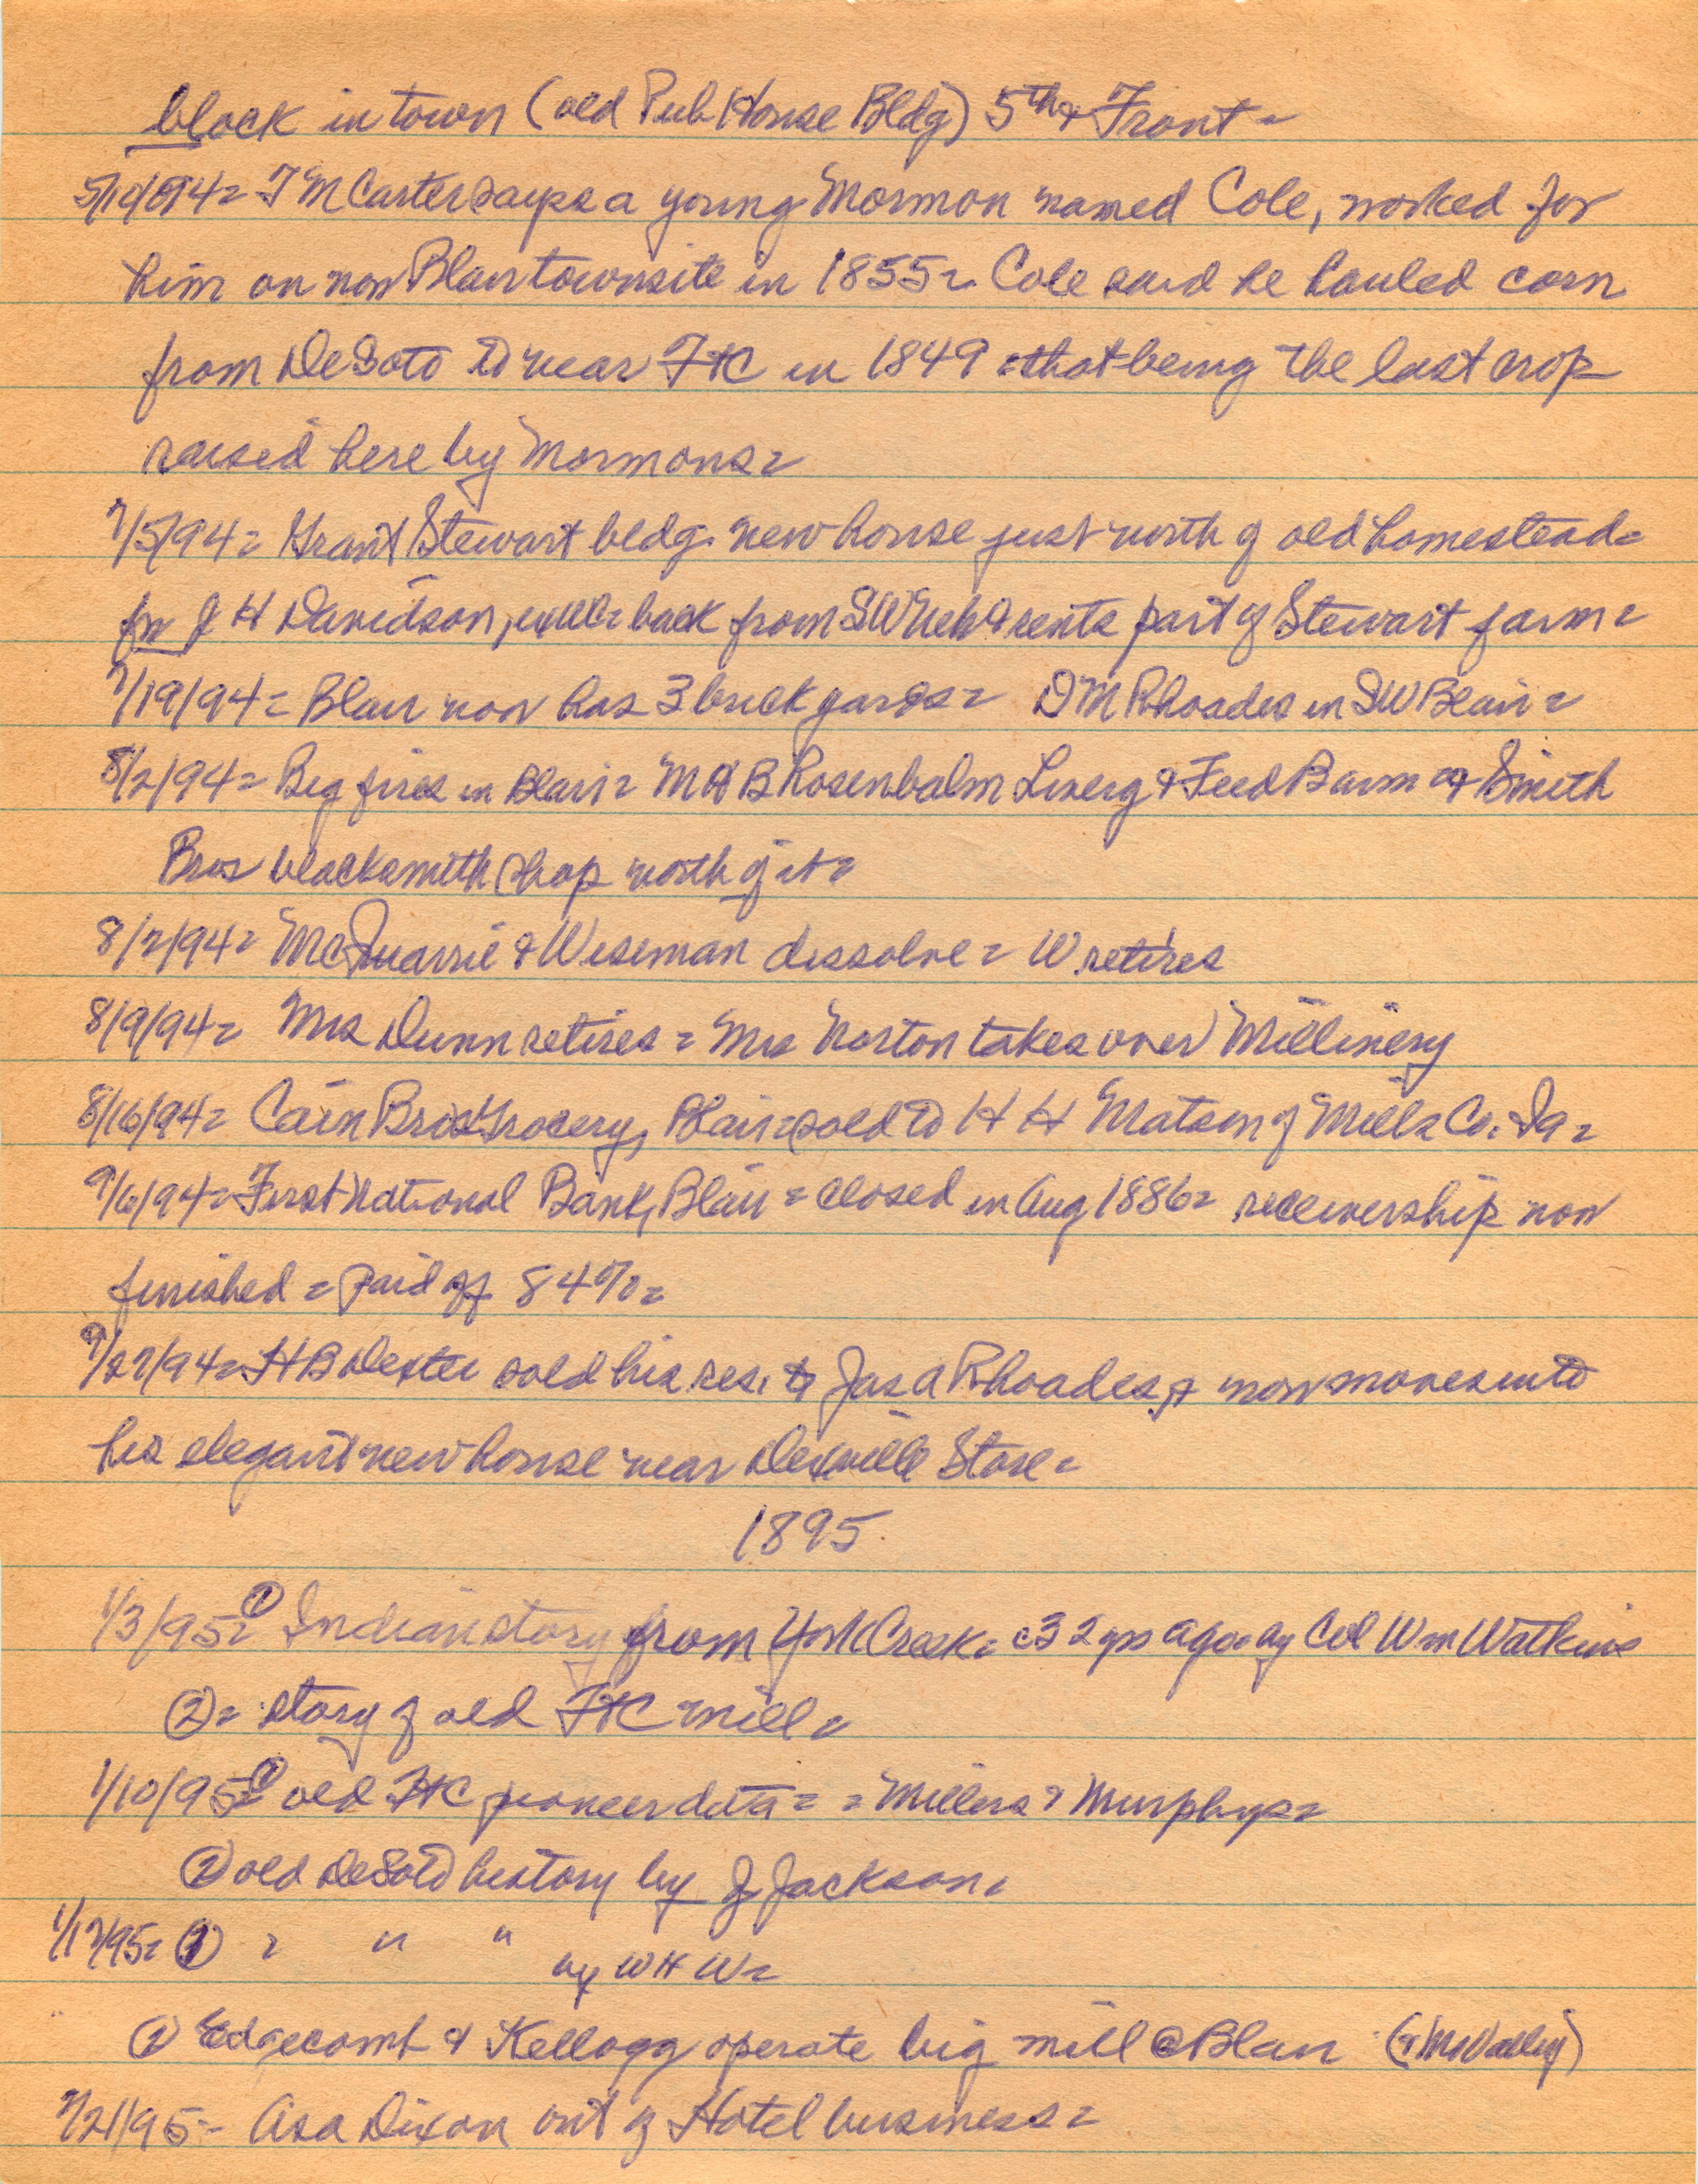 block in town (old Pub House Bldg) 5th & Front =
5/10/94 = T M Carter says a young Mormon named Cole, worked for
him on now Blair townsite in 1855 = Cole said he hauled corn
from DeSoto to near FtC in 1849 = that being the last crop
raised here by Mormons =
7/5/94 = Grant Stewart bldg. new house just north of old homestead =
for J H Davidson, back from SW Neb & rents part of Stewart farm =
7/19/94 = Blair now has 3 brick yards = D M Rhoades in SW Blair =
8/2/94 = Big fires in Blair = Rosenbalm Livery & Feed Barn & Smith
Bros blacksmith shop north of it =
8/2/94 = McQuarrie & Wiseman dissolve = W retires
8/9/94 = Mrs Dunn retires = Mrs Norton takes over Millinery
8/16/94 = Cain Bros Grocery, Blair = sold to H H Matson of Mills Co. Ia =
9/6/94 = First National Bank, Blair = closed in Aug 1886 = receivership now
finished = paid off 84% =
9/27/94 = H B Dexter sold his res. to Jas A Rhoades, & now moves into
his elegant new house near Dexville Store =
1895
1/3/95 = ① Indian story from York Creek = 32 yrs ago = by Col Wm Watkins
② = story of old FtC mill =
1/10/95 = ① old FtC pioneer data = = Millers & Murphys =
② old DeSoto history by J Jackson =
1/17/95 = ① = " " by W H W =
② Edgecomb & Kellogg operate big mill @ Blair (& Mo Valley)
2/21/95 - Asa Dixon out of Hotel business =